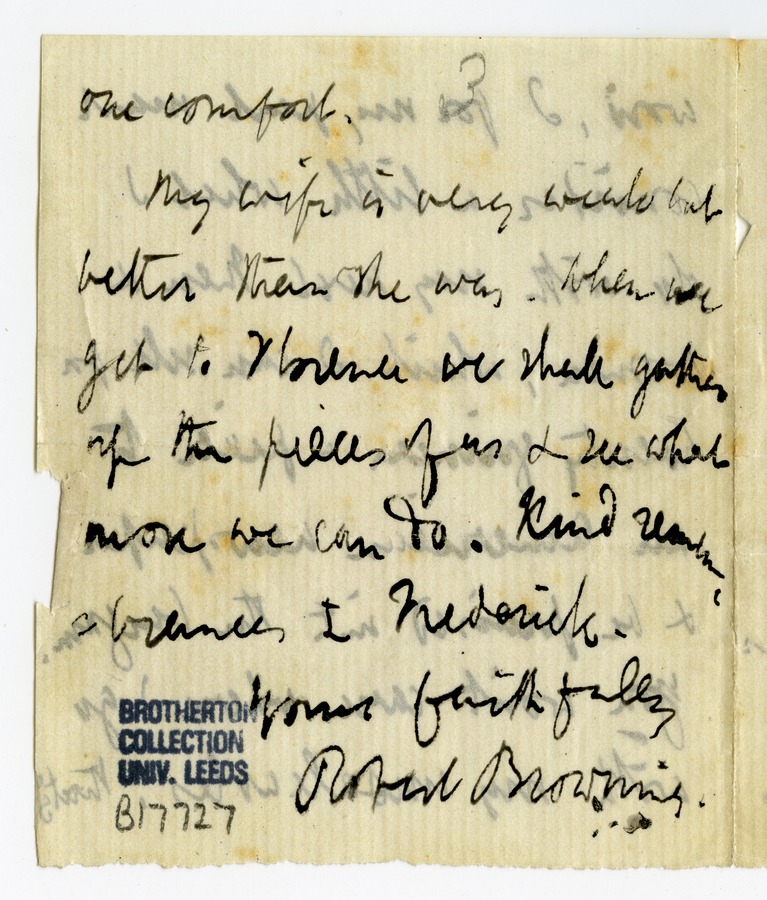 one comfort.
My wife is very weak but
better than she was. When we
get to Florence we shall gather
up the pieces of us & see what
more we can do. Kind remem-
-brances to Frederick.
Yours faithfully
Robert Browning.
BROTHERTON
COLLECTION
UNIV. LEEDS
B17727